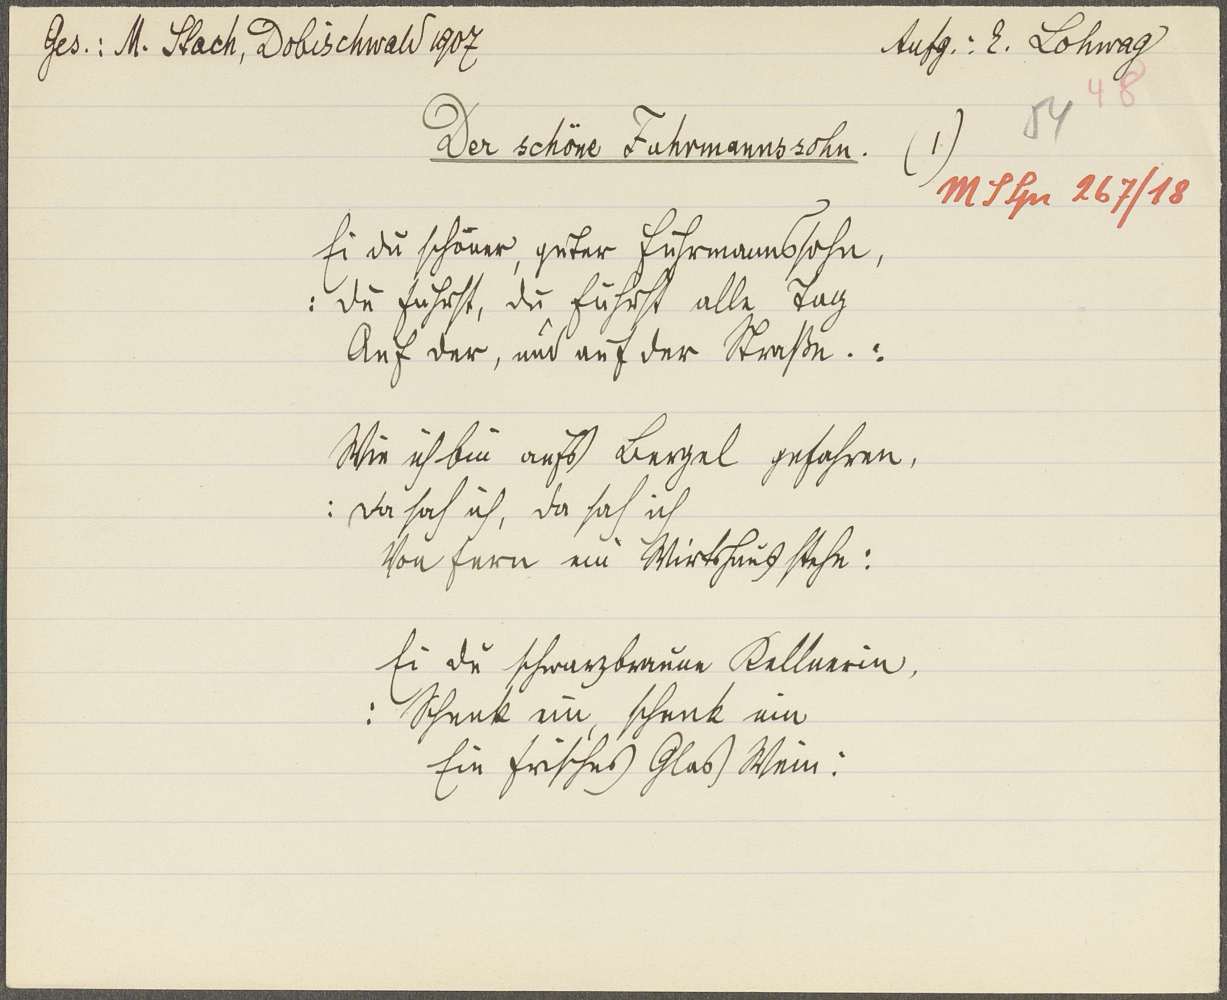 Ges.: M. Stach, Dobischwald 1907
Aufg.: E. Lohwag
48
54
Der schöne Fuhrmannssohn. (1)
267/18
Ei du schöner, guter Fuhrmannssohn,
: Du fuhrst, du fuhrst alle Tag
Auf der, und auf der Straße. :
Wie ich bin aufs Bergel gefahren,
: Da sah ich, da sah ich
Von fern ein Wirtshaus stehn :
Ei du schwarzbraune Kellnerin,
: Schenk ein, schenk ein
Ein frisches Glas Wein :